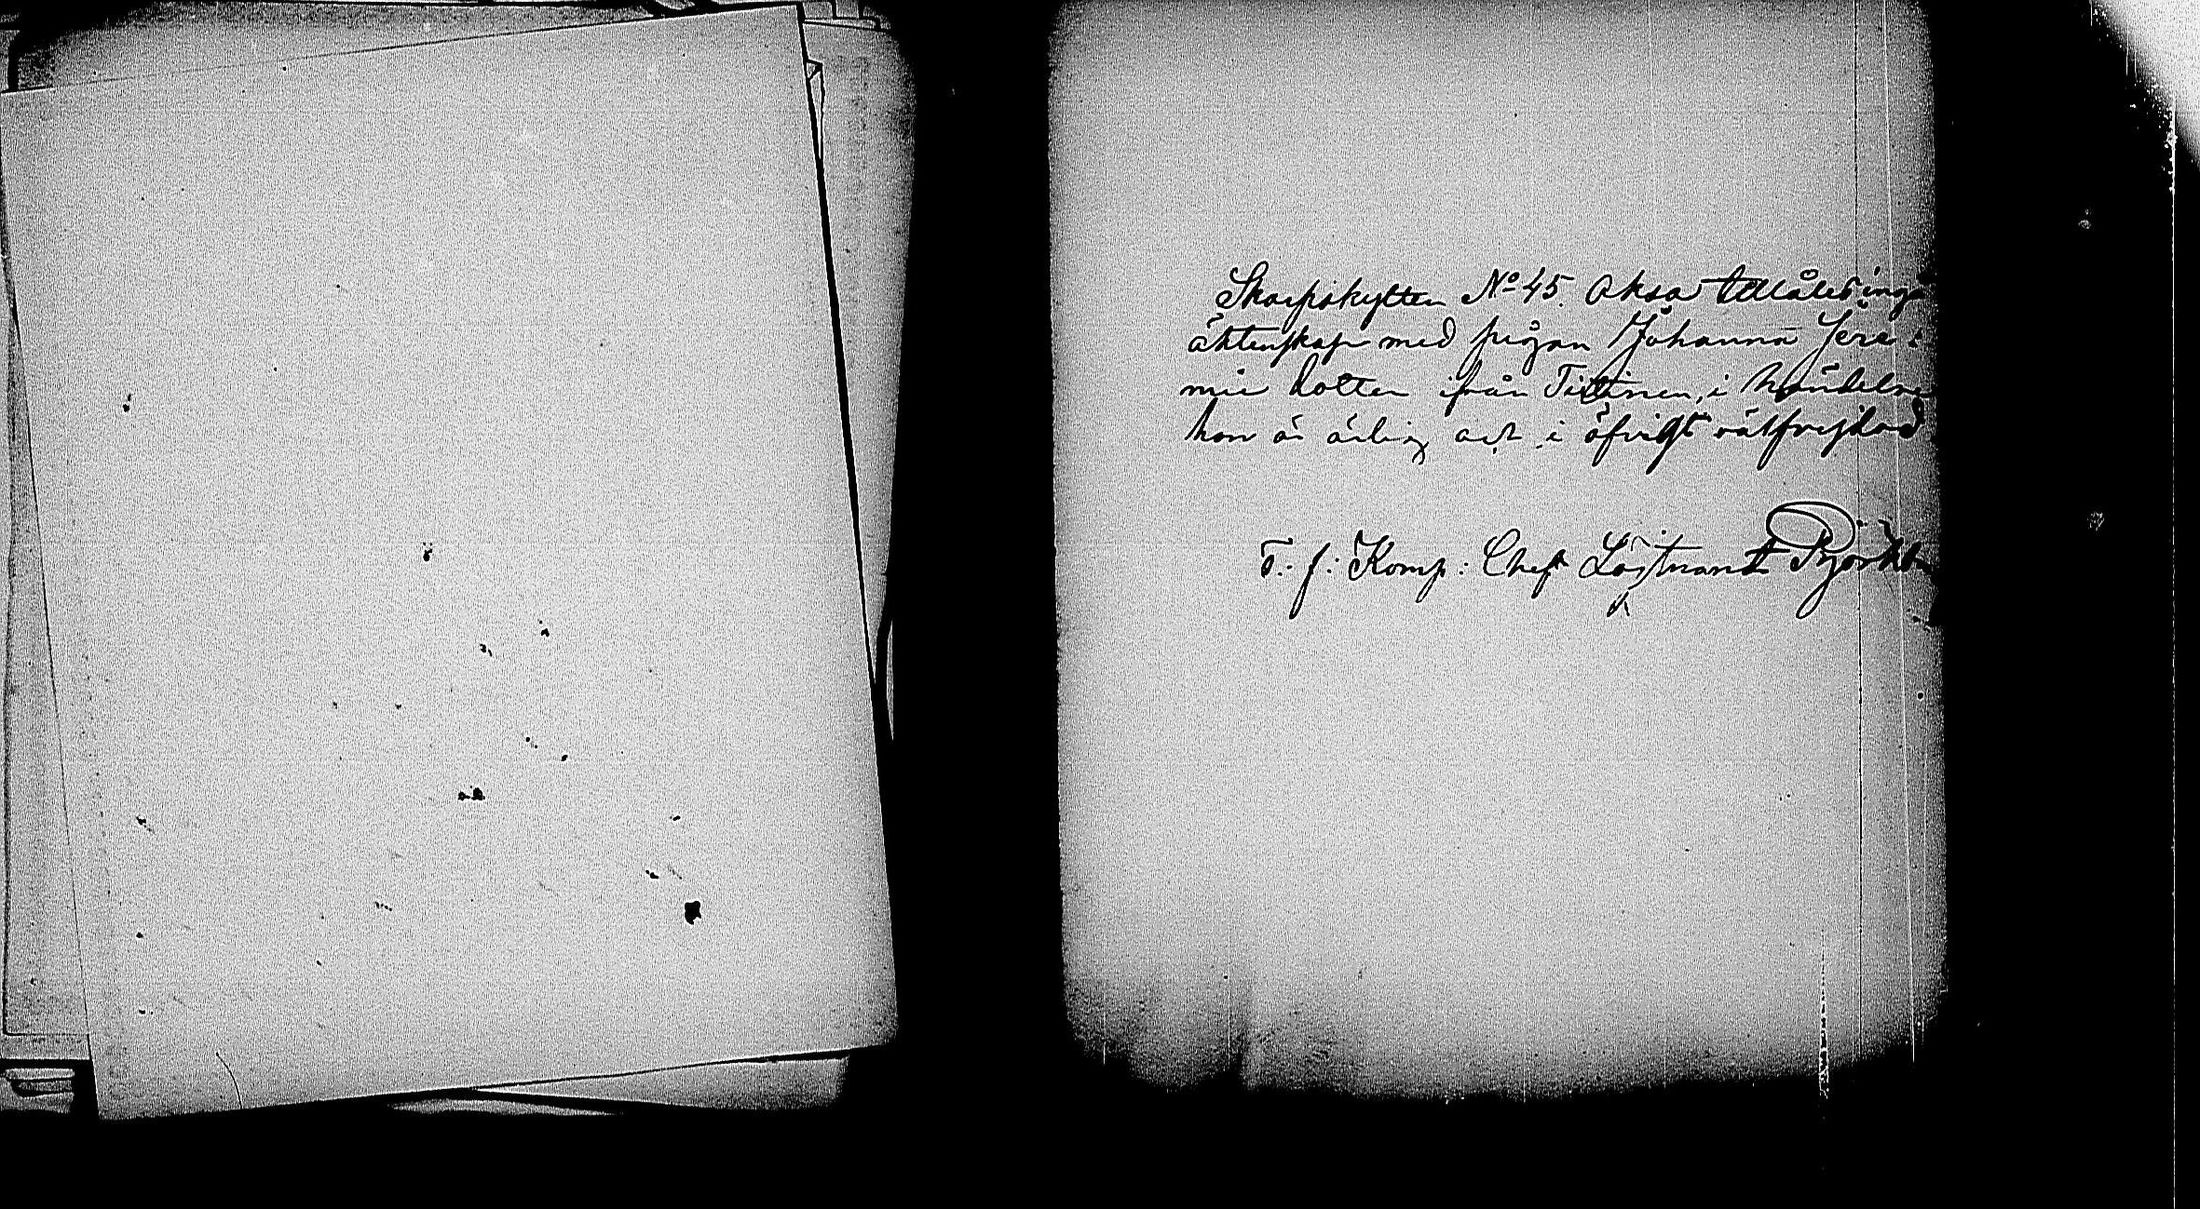 Skarpskytten No 45. Oksa tillåtes ingå
äktenskap med pigan Johanna Jere-
mie dotter ifrån Tiitinen, i händelse
hon är ärlig och i öfrigt välfrejdad
T. f. Komp: Chef Löjtnant